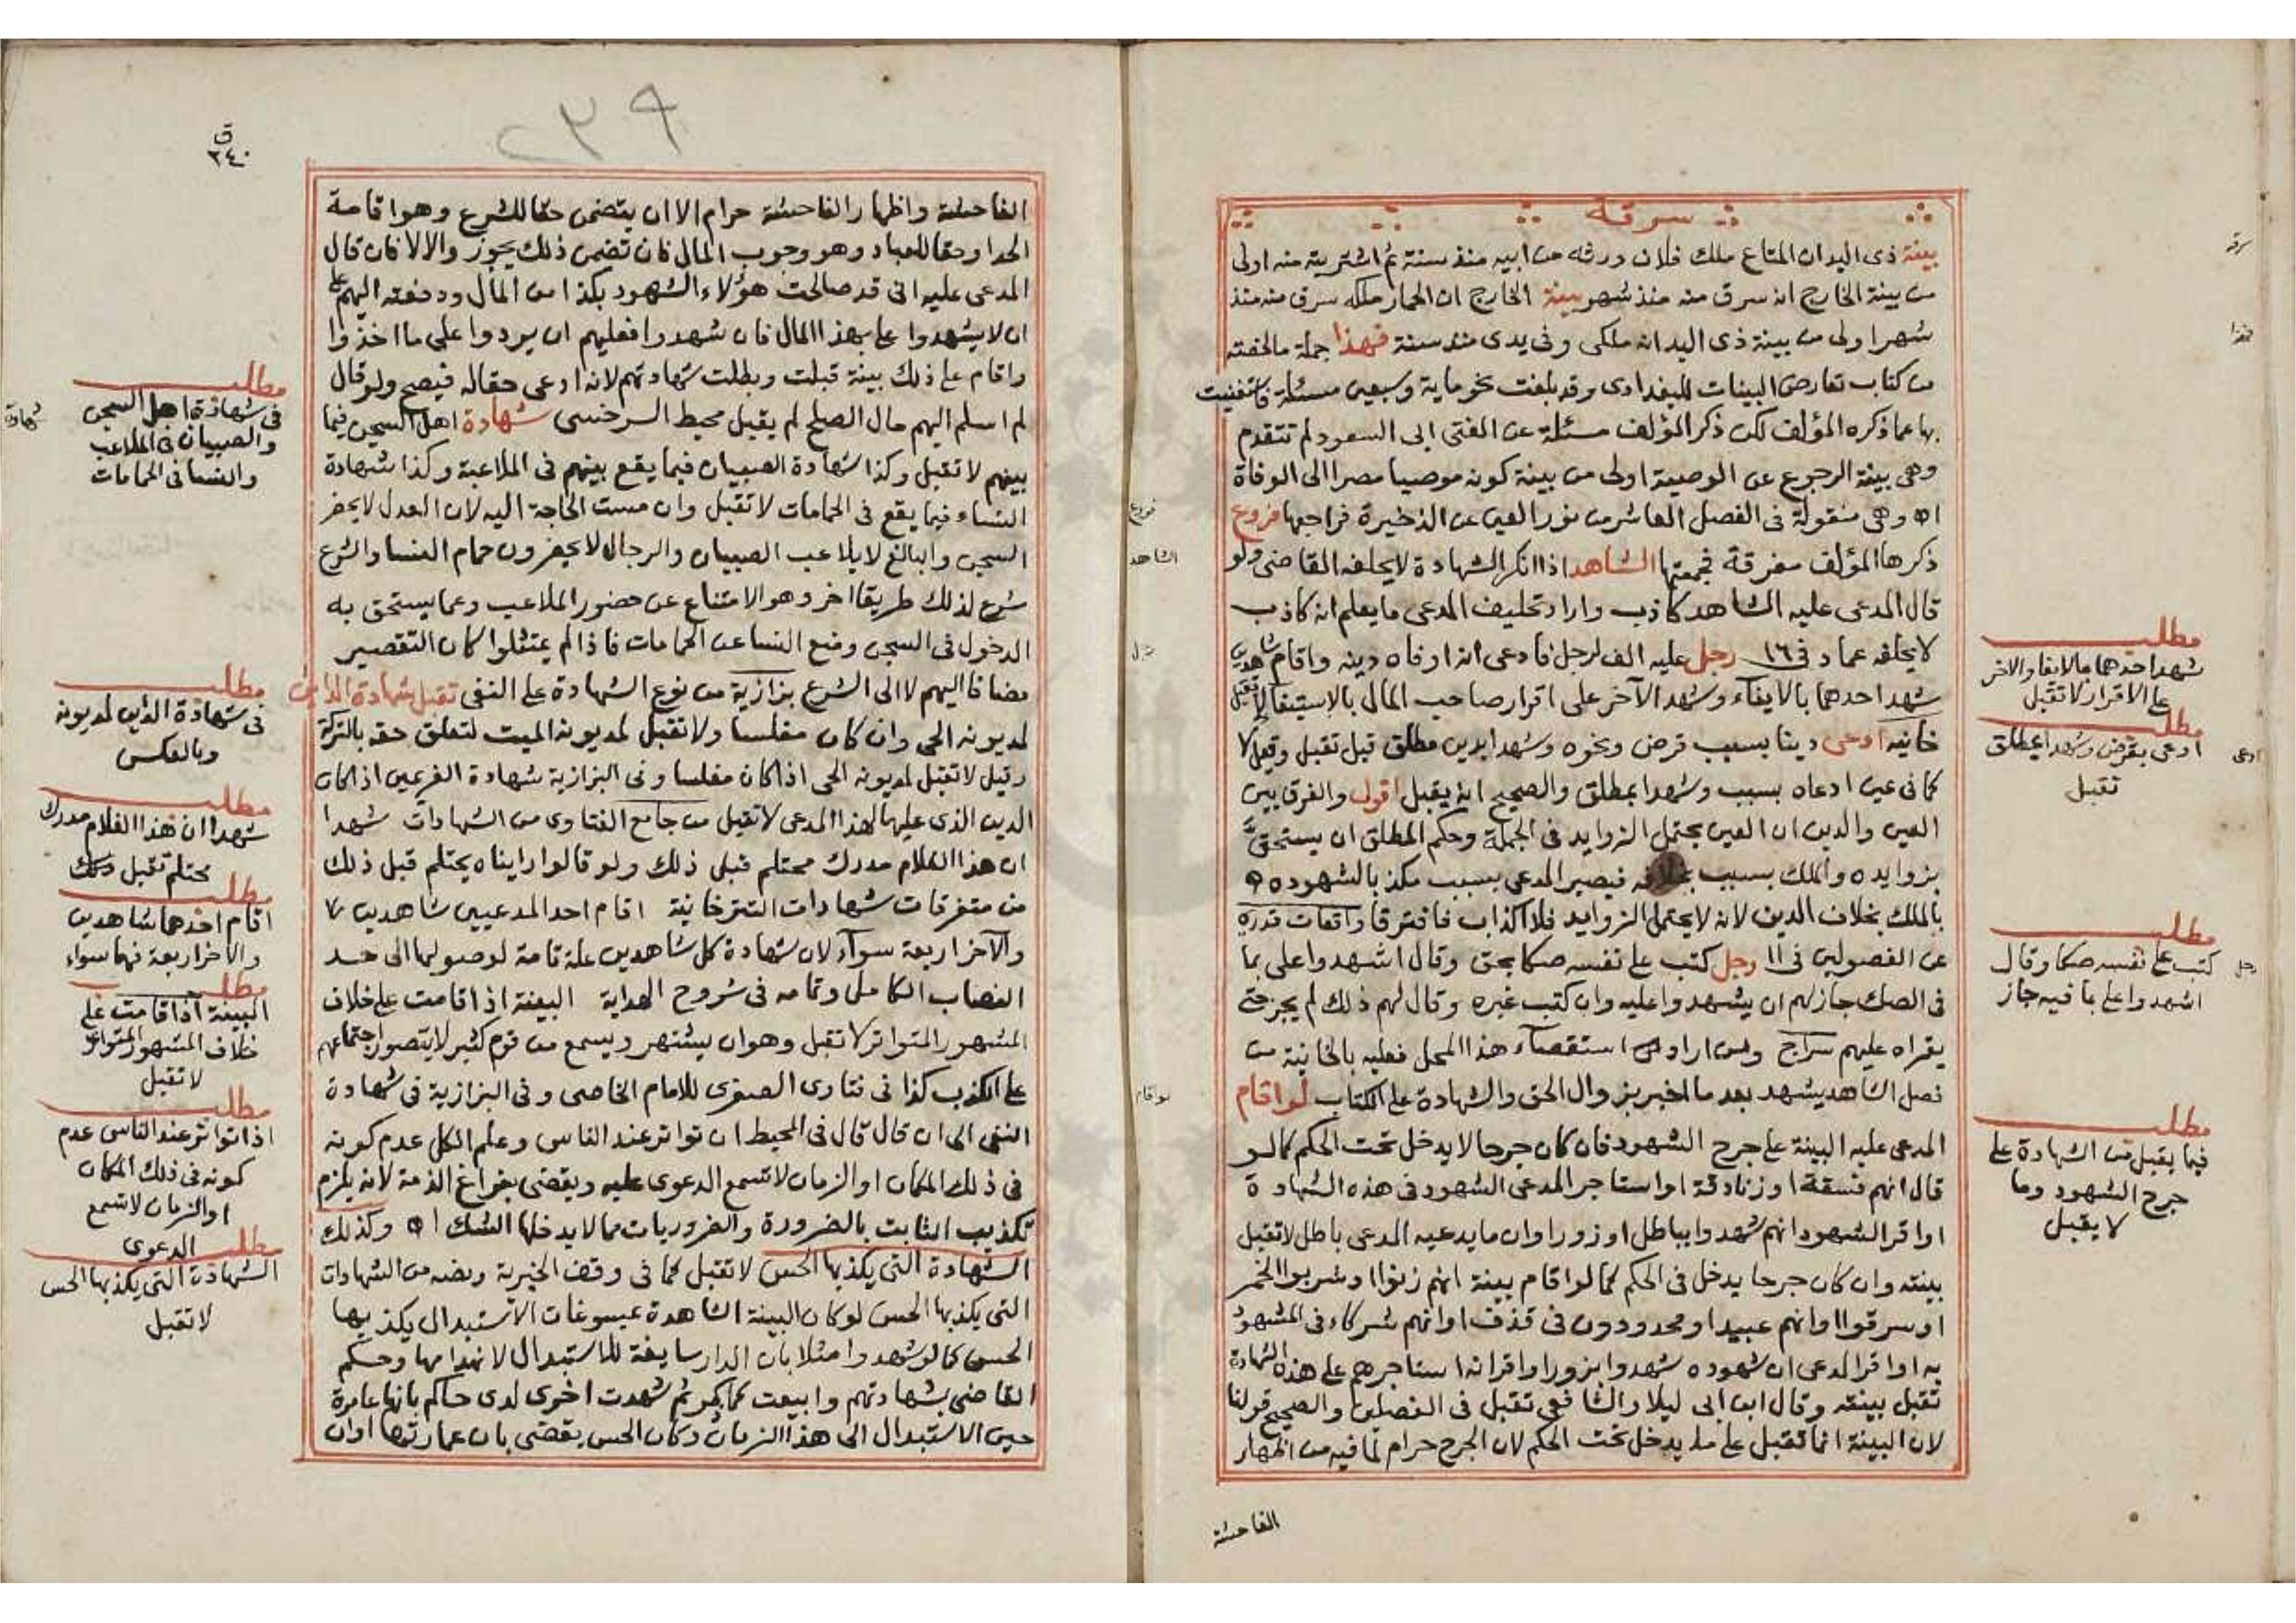 سرقة
بينة ذى اليد ان المتاع ملك فلان ورثه من ابيه منذ سنة ثم اشتريته منه اولى
من بينة الخارج انه سرق منه منذ شهر بينة الخارج ان الحمار ملكه سرق منه منذ
شهر اولى من بينة ذى اليد انه ملكى وفى يدى منذ سنة فهذا جملة ما لخصته
من كتاب تعارض البينات للبغدادى وقد بلغت نحو ماية وسبعين مسئلة فاستغنيت
بها عما ذكره المؤلف لكن ذكر المؤلف مسئلة عن المفتى ابى السعود لم تتقدم
وهى بينة الرجوع عن الوصية اولى من بينة كونه موصيا مصرا الى الوفاة
اه وهى منقولة فى الفصل العاشر من نور العين عن الذخيرة فراجعها فروع
ذكرها المؤلف مفرقة فجمعتها الشاهد اذا انكر الشهادة لا يحلفه القاضى ولو
قال المدعى عليه الشاهد كاذب واراد تحليف المدعى ما يعلم انه كاذب
لا يحلفه عماد فى ١٦ رجل عليه الف لرجل فادعى انه اوفاه دينه واقام شاهدين
شهد احدهما بالايفاء وشهد الآخر على اقرار صاحب المال بالاستيفا لا تقبل
خانيه ادعى دينا بسبب قرض ونحوه وشهدا بدين مطلق قيل تقبل وقيل لا
كما فى عين ادعاه بسبب وشهدا بمطلق والصحيح انه يقبل اقول والفرق بين
العين والدين ان العين يحتمل الزوايد فى الجملة وحكم المطلق ان يستحق
بزوايده والملك بسبب بخلافه فيصير المدعى بسبب مكذبا لشهوده
بالملك بخلاف الدين لانه لا يحتمل الزوايد فلا اكذاب فافترقا واقعات قدرى
عن الفصولين فى ١١ رجل كتب على نفسه صكا بحق وقال اشهدوا على بما
فى الصك جاز لهم ان يشهدوا عليه وان كتب غيره وقال لهم ذلك لم يجز حتى
يقراه عليهم سراج ومن اراد استقصاء هذا المحل فعليه بالخانية من
فصل الشاهد يشهد بعد ما اخبر بزوال الحق والشهادة على الكتاب لو اقام
المدعى عليه البينة على جرح الشهود فان كان جرحا لا يدخل تحت الحكم كما لو
قال انهم فسقة او زنادقة او استاجر المدعى الشهود فى هذه الشهادة
او اقر الشهود انهم شهدوا بباطل او زور او ان ما يدعيه المدعى باطل لا تقبل
بينته وان كان جرحا يدخل فى الحكم كما لو اقام بينة انهم زنوا او شربوا الخمر
او سرقوا او انهم عبيد او محدودون فى قذف او انهم شركاء فى المشهود
به او اقر المدعى ان شهوده شهدوا بزور او اقر انه استاجرهم على هذه الشهادة
تقبل بينته وقال ابن ابى ليلا والشافعى تقبل فى الفصلين والصحيح قولنا
لان البينة انما تقبل على ما يدخل تحت الحكم لان الجرح حرام لما فيه من اظهار
الفاحشة
سرقه
فهذا
مطلب
شهد احدهما بالايفا والاخر
على الاقرار لا تقبل
مطلب
ادعى بقرض وشهدا بمطلق
تقبل
ادعى
مطلب
كتب على نفسه صكا وقال
اشهدوا على بما فيه جاز
رجل
مطلب
فيما يقبل من الشهادة على
جرح الشهود وما
لا يقبل
فروع
الشاهد
رجل
لو اقام
٢٣٩
ق
٢٤٠
الفاحشة واظهار الفاحشة حرام الا ان يتضمن حقا للشرع وهو اقامة
الحد او حقا للعباد وهو وجوب المال فان تضمن ذلك يجوز والا لا فان قال
المدعى عليه انى قد صالحت هؤلاء الشهود بكذا من المال ودفعته اليهم على
ان لا يشهدوا على بهذا المال فان شهدوا فعليهم ان يردوا على ما اخذوا
واقام على ذلك بينة قبلت وبطلت شهادتهم لانه ادعى حقا له فيصح ولو قال
لم اسلم اليهم مال الصلح لم يقبل محيط السرخسى شهادة اهل السجن فيما
بينهم لا تقبل وكذا شهادة الصبيان فيما يقع بينهم فى الملاعبة وكذا شهادة
النساء فيما يقع فى الحمامات لا تقبل وان مست الحاجة اليه لان العدل لا يحضر
السجن والبالغ لا يلاعب الصبيان والرجال لا يحضرون حمام النسا والشرع
شرع لذلك طريقا اخر وهو الامتناع عن حضور الملاعب وعما يستحق به
الدخول فى السجن ومنع النسا عن الحمامات فاذا لم يمتثلوا كان التقصير
مضافا اليهم لا الى الشرع بزازية من نوع الشهادة على النفى تقبل شهادة الداين
لمديونه الحى وان كان مفلسا ولا تقبل لمديونه الميت لتعلق حقه بالتركة
وقيل لا تقبل لمديونه الحى اذا كان مفلسا وفى البزازية شهادة الغريمين اذا كان
الدين الذى عليهما لهذا المدعى لا تقبل من جامع الفتاوى من الشهادات شهدا
ان هذا الغلام مدرك محتلم قبل ذلك ولو قالوا راينا ه يحتلم قبل ذلك
من متفرقات شهادات التترخانية اقام احد المدعيين شاهدين
والآخر اربعة سواء لان شهادة كل شاهدين علة تامة لوصولها الى حد
النصاب الكامل وتمامه فى شروح الهداية البينة اذا قامت على خلاف
المشهور المتواتر لا تقبل وهو ان يشتهر ويسمع من قوم كثير لا يتصور اجتماعهم
على الكذب كذا فى فتاوى الصغرى للامام الخاصى وفى البزازية فى شهادة
النفى الى ان قال قال فى المحيط ان تواتر عند الناس وعلم الكل عدم كونه
فى ذلك المكان او الزمان لا تسمع الدعوى عليه ويقضى بفراغ الذمة لانه يلزم
تكذيب الثابت بالضرورة والضروريات مما لا يدخلها الشك اه وكذلك
الشهادة التى يكذبها الحس لا تقبل كما فى وقف الخيرية ونصه من الشهادات
التى يكذبها الحس لو كان البينة الشاهدة بمسوغات الاستبدال يكذبها
الحس كما لو شهدوا مثلا بان الدار سايغة للاستبدال لانهدامها وحكم
القاضى بشهادتهم وابيعت كما ذكر ثم شهدت اخرى لدى حاكم بانها عامرة
حين الاستبدال الى هذا الزمان وكان الحس يقضى بان عمارتها اوان
مطلب
فى شهادة اهل السجن
والصبيان فى الملاعب
والنسا فى الحمامات
شهادة
مطلب
فى شهادة الداين لمديونه
وبالعكس
مطلب
شهدا ان هذا الغلام مدرك
محتلم تقبل
مطلب
اقام احدهما شاهدين
والاخر اربعة فهما سواء
مطلب
البينة اذا قامت على
خلاف المشهور المتواتر
لا تقبل
مطلب
اذا تواتر عند الناس عدم
كونه فى ذلك المكان
او الزمان لا تسمع
الدعوى
مطلب
الشهادة التى يكذبها الحس
لا تقبل